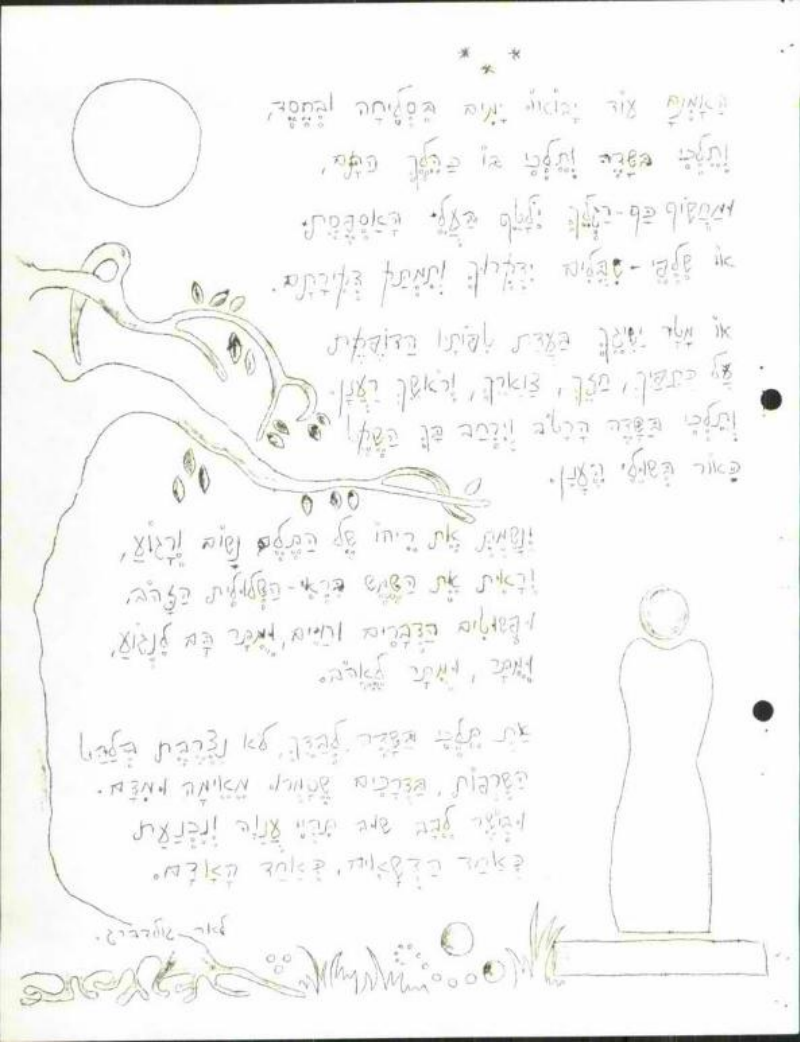 * * *
הַאֻמְנָם עוֹד יָבוֹאוּ יָמִים בִּסְלִיחָה וּבְחֶסֶד,
וְתֵלְכִי בַּשָּׂדֶה וְתֵלְכִי בּוֹ כַּהֵלֶךְ הַתָּם,
וּמַחֲשׂוֹף כַּף-רַגְלֵךְ יִלָּטֵף בַּעֲלֵי הָאַסְפֶּסֶת
אוֹ שִׁלְפֵי-שִׁבֳּלִים יִדְקְרוּךְ וְתִמְתַּק דְּקִירָתָם.
אוֹ מָטָר יַשִּׂיגֵךְ בַּעֲדַת טִפּוֹתָיו הַדּוֹפֶקֶת
עַל כְּתֵפַיִךְ, חָזֵךְ, צַוָּארֵךְ, וְרֹאשֵׁךְ רַעֲנָן.
וְתֵלְכִי בַּשָּׂדֶה הָרָטֹב וְיִרְחַב בָּךְ הַשֶּׁקֶט
כָּאוֹר בְּשׁוּלֵי הֶעָנָן.
וְנָשַׁמְתְּ אֶת רֵיחוֹ שֶׁל הַתֶּלֶם נָשׁוֹם וְרָגוֹעַ,
וְרָאִית אֶת הַשֶּׁמֶשׁ בִּרְאִי-הַשְּׁלוּלִית הַזָּהֹב,
וּפְשׁוּטִים הַדְּבָרִים וְחַיִּים, וּמֻתָּר בָּם לִנְגּוֹעַ,
וּמֻתָּר, וּמֻתָּר לֶאֱהֹב.
אַתְּ תֵּלְכִי בַּשָּׂדֶה לְבַדֵּךְ, לֹא נִצְרֶבֶת בְּלַהַט
הַשְּׂרֵפוֹת, בַּדְּרָכִים שֶׁסָּמְרוּ מֵאֵימָה וּמִדָּם.
וּבְיֹשֶׁר לֵבָב שׁוּב תִּהְיִי עֲנָוָה וְנִכְנַעַת
כְּאַחַד הַדְּשָׁאִים, כְּאַחַד הָאָדָם.
לאה גולדברג.